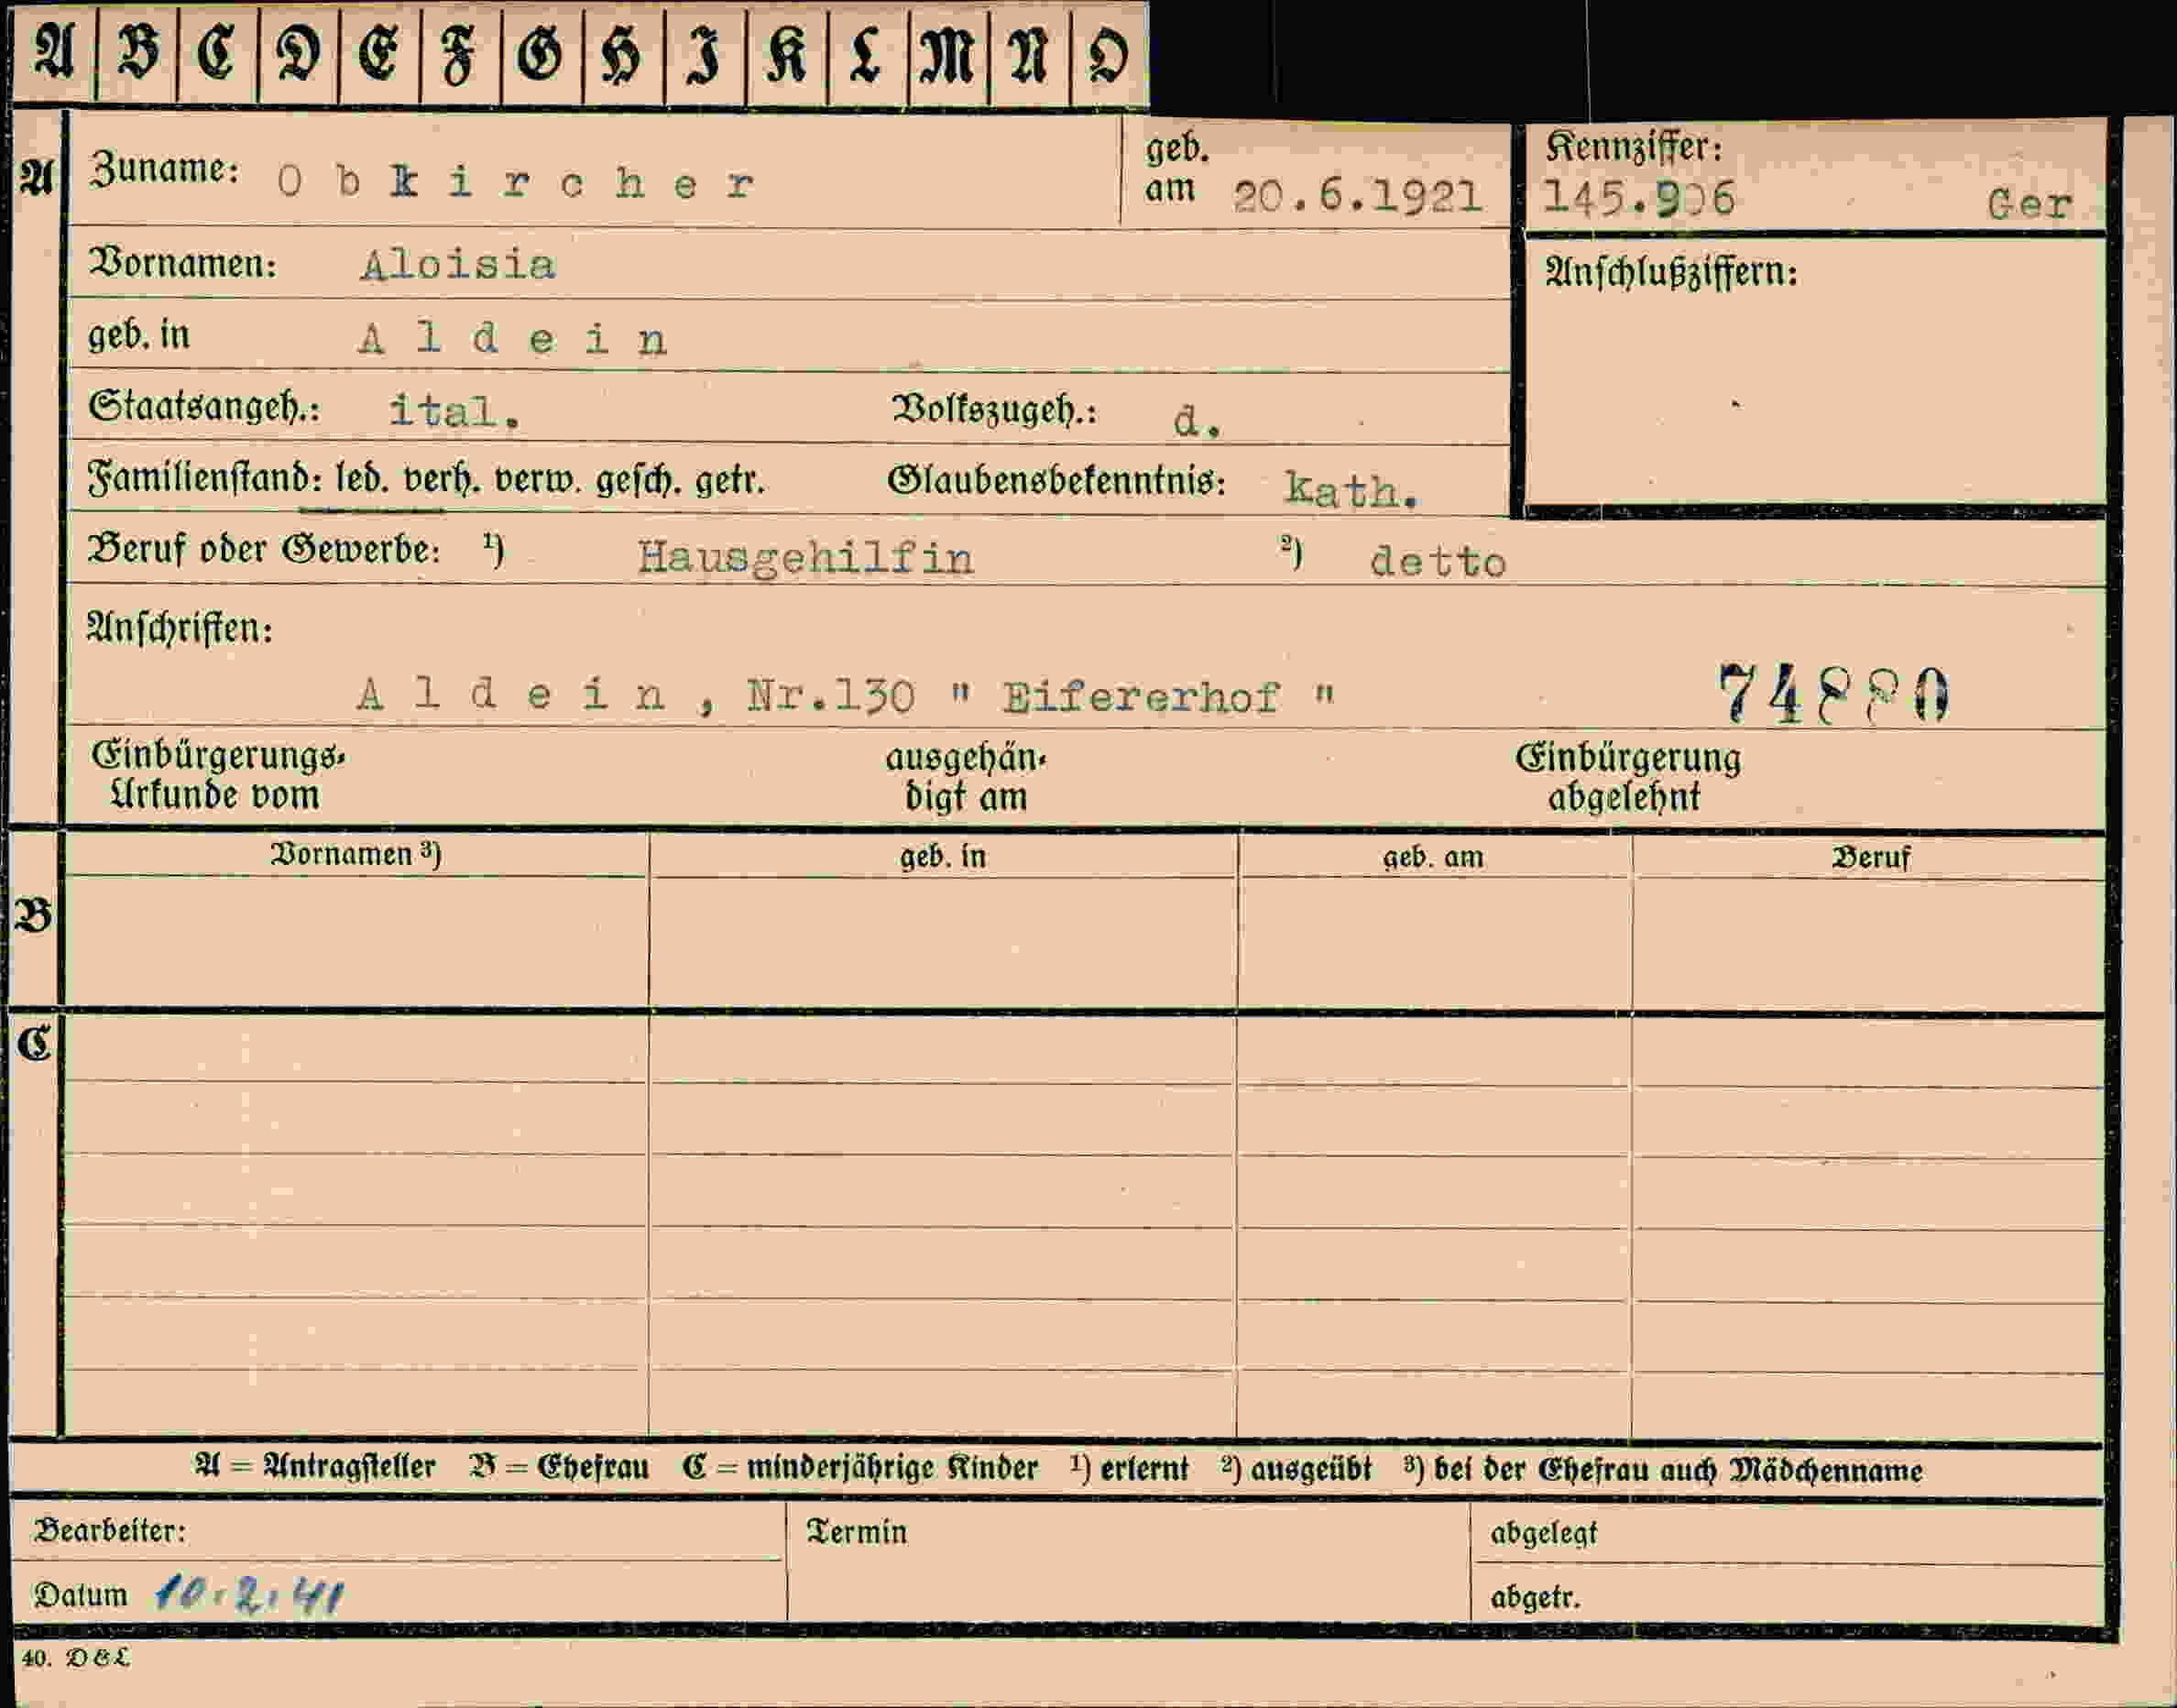 A B C D E F G H I K L M N O
A Zuname: Obkircher geb. am 20.6.1921 Kennziffer: 145.906 Ger
Vornamen: Aloisia Anschlußziffern:
geb. in Aldein
Staatsangeh.: ital. Volkszugeh.: d.
Familienstand: led. verh. verw. gesch. getr. Glaubensbekenntnis: kath.
Beruf oder Gewerbe: ¹) Hausgehilfin ²) detto
Anschriften:
Aldein, Nr.130 " Eifererhof " 74880
Einbürgerungs- ausgehän- Einbürgerung
Urkunde vom digt am abgelehnt
Vornamen ³) geb. in geb. am Beruf
B
C
A = Antragsteller B = Ehefrau C = minderjährige Kinder ¹) erlernt ²) ausgeübt ³) bei der Ehefrau auch Mädchenname
Bearbeiter: Termin abgelegt
Datum 10.2.41 abgetr.
40. D&L